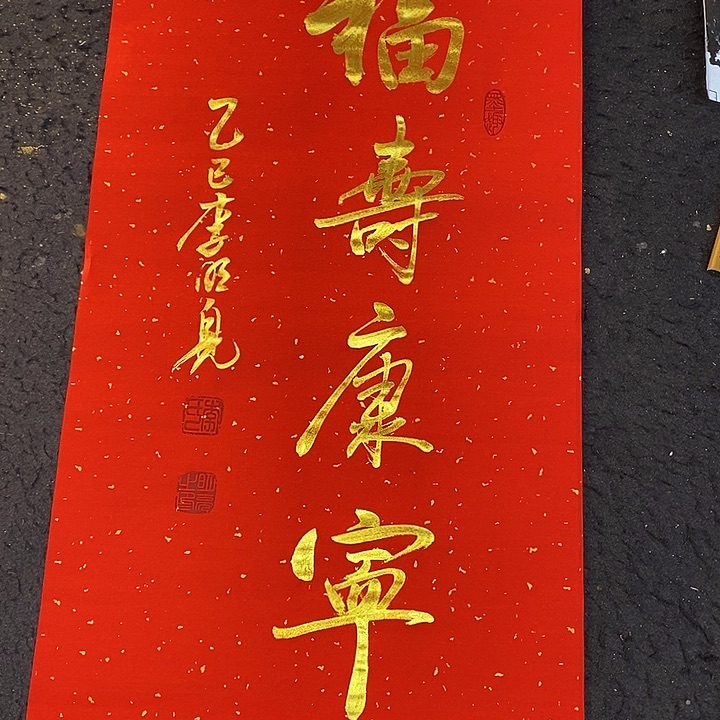 福壽康寧
乙巳李明見